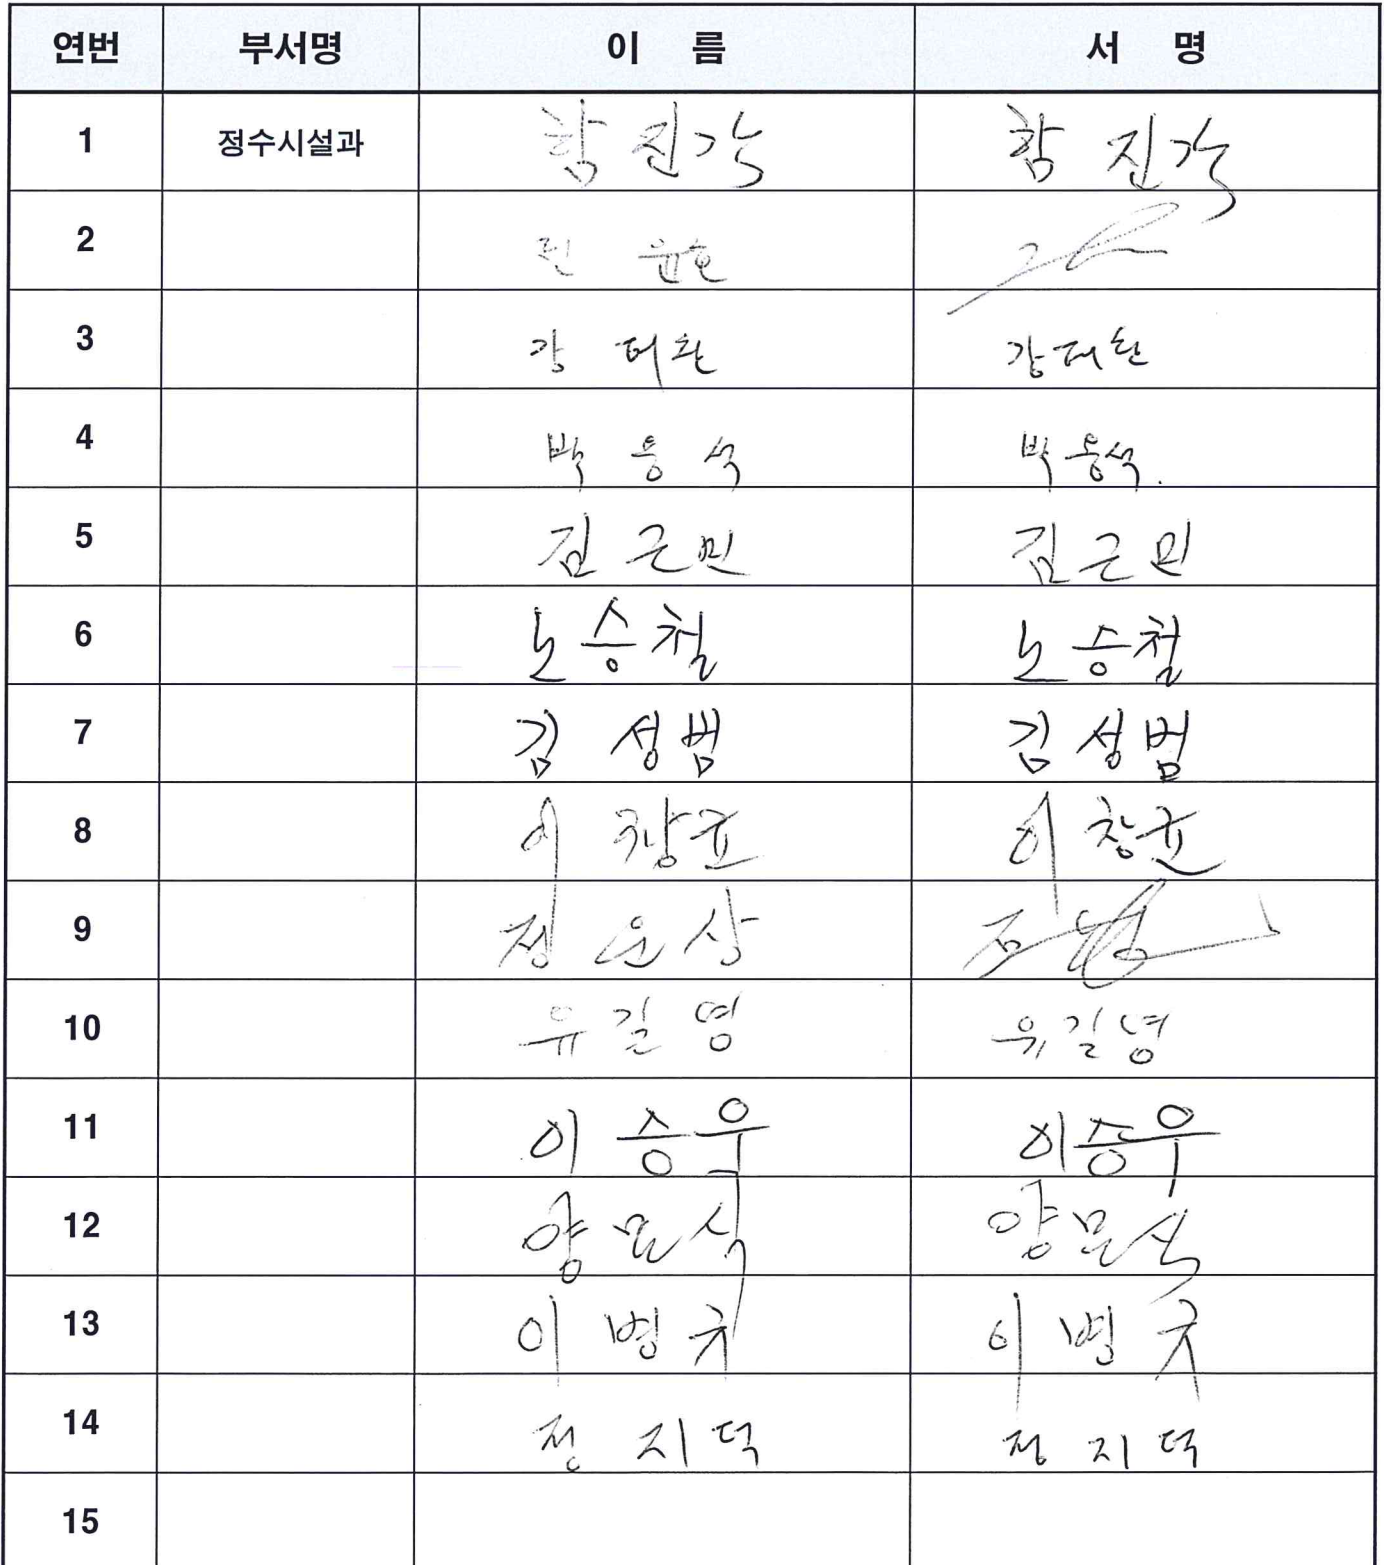 연번 부서명 이 름 서 명
1 정수시설과 함 진각 함 진각
2 윤호
3 강 태환 강태환
4 박 웅 석 박웅석.
5 김 근민 김근민
6 노승철 노승철
7 김 성범 김성범
8 이 창균 이창균
9 정 운상
10 유길영 유길영
11 이승우 이승우
12 양문석 양문석
13 이병규 이병규
14 정 지덕 정 지덕
15